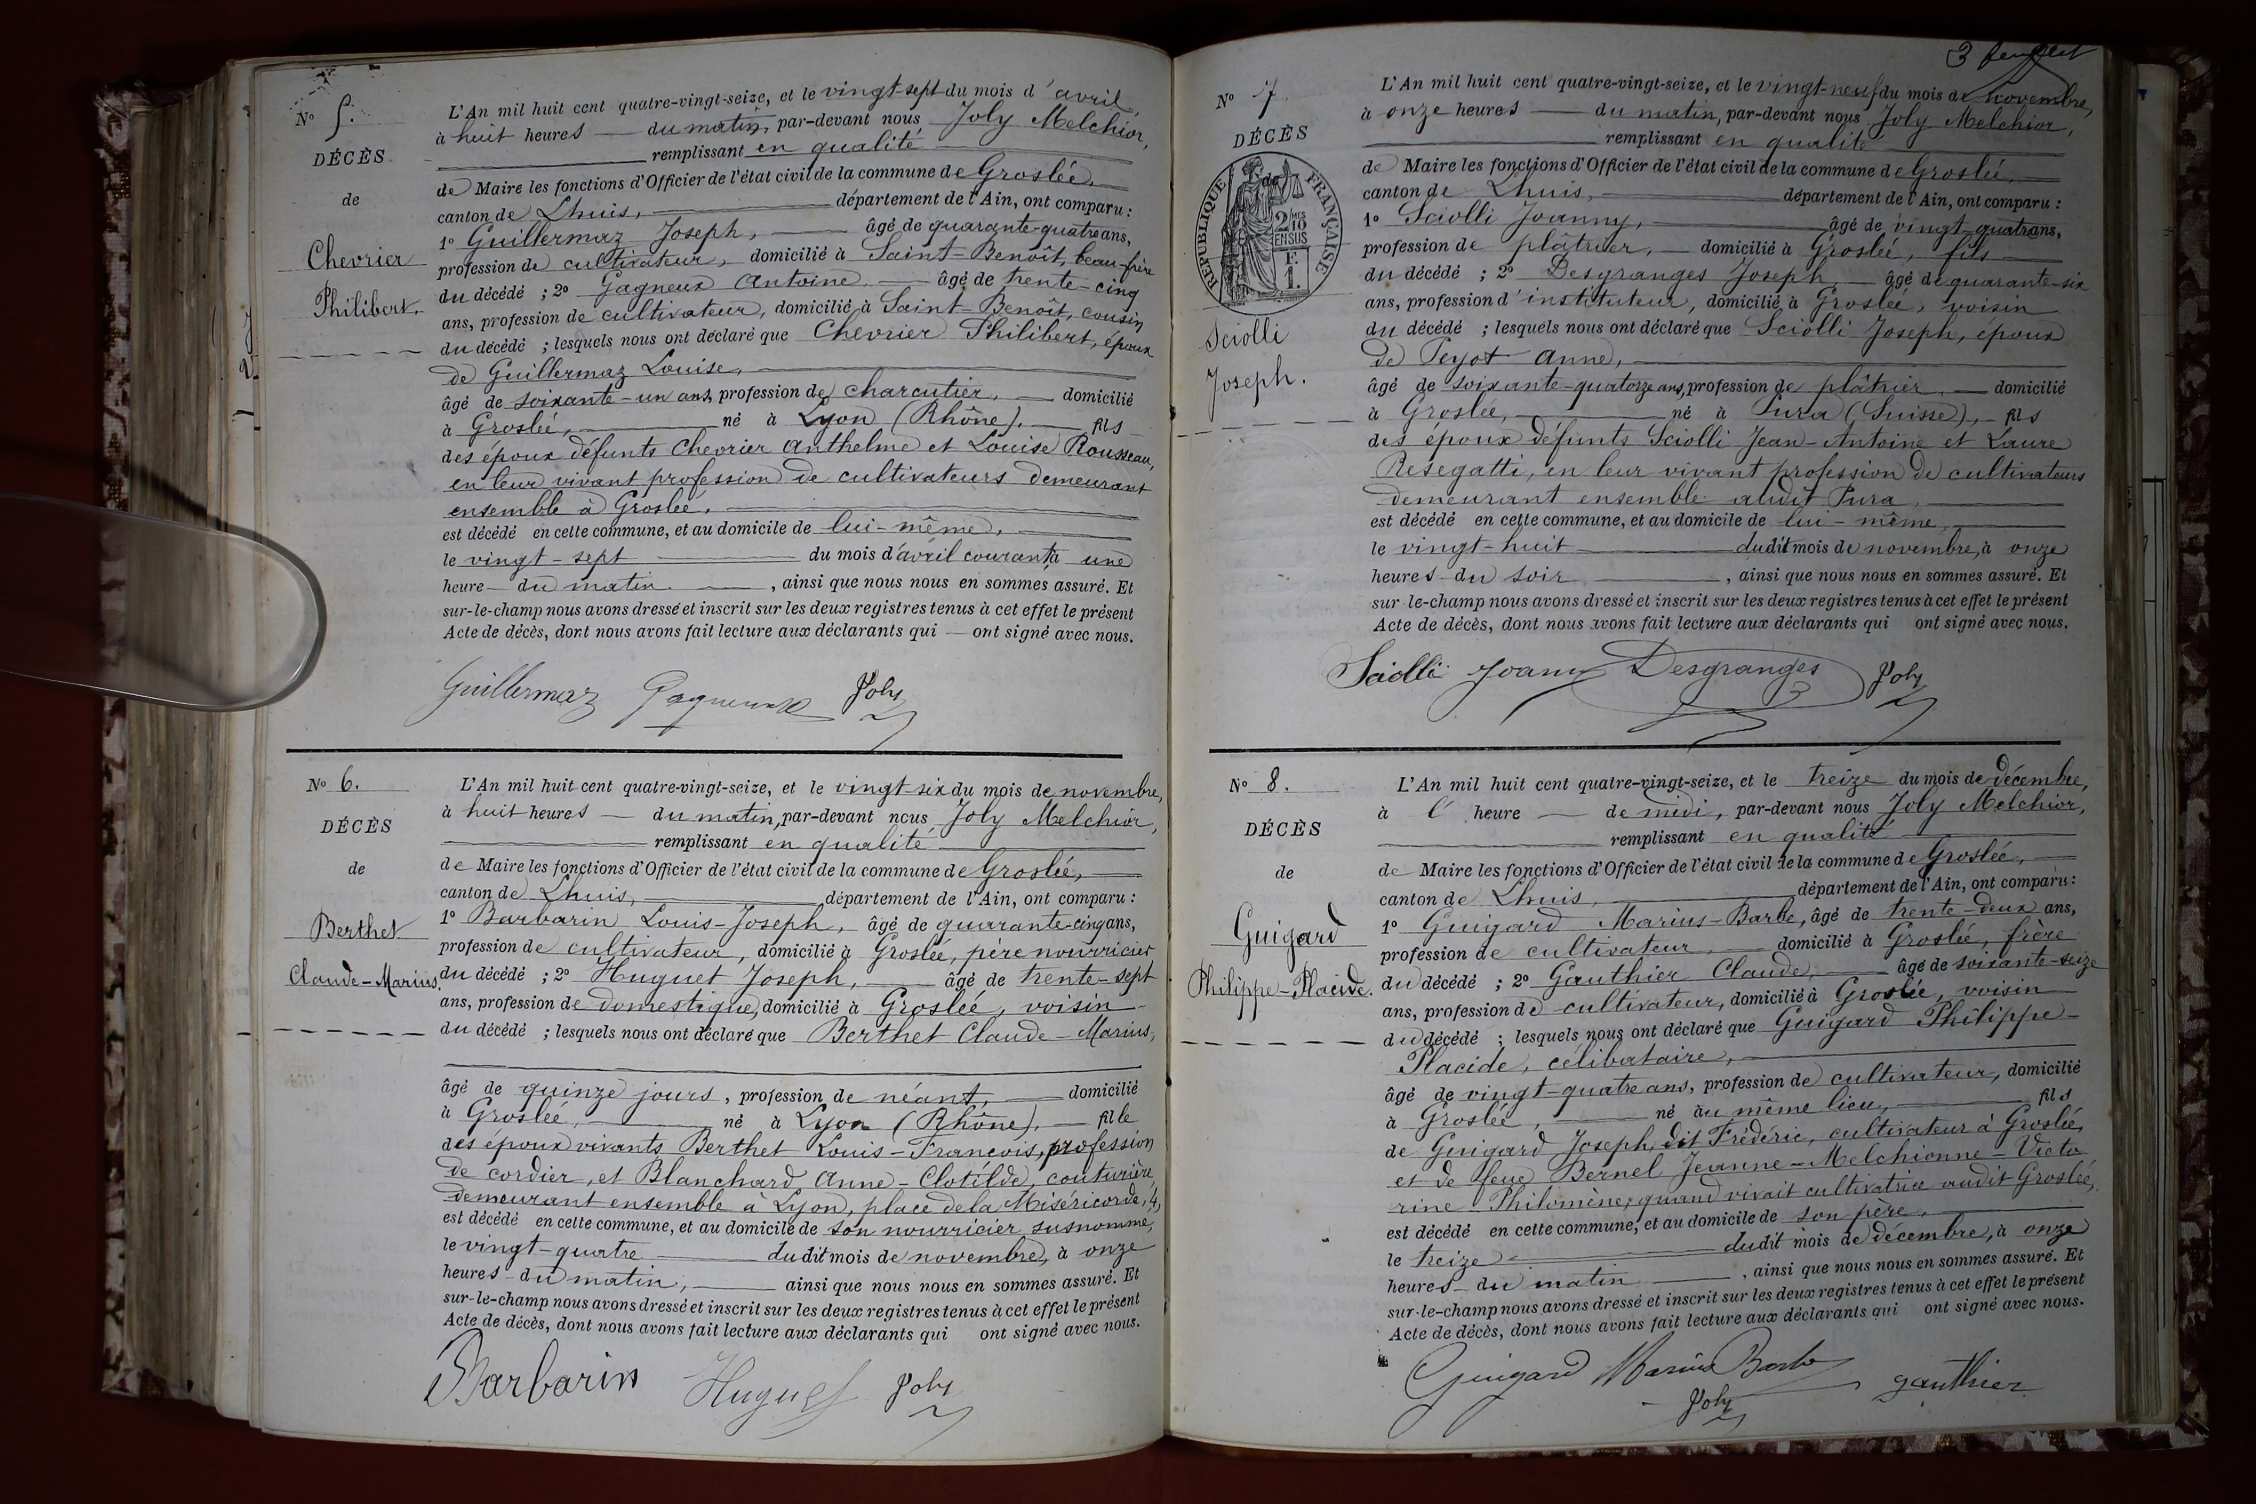 No 5.
DÉCÈS
de
Chevrier
Philibert.
L'An mil huit cent quatre-vingt-seize, et le vingt-sept du mois d'avril,
à huit heures du matin, par-devant nous Joly Melchior,
remplissant en qualité
de Maire les fonctions d'Officier de l'état civil de la commune de Groslée,
canton de Lhuis, département de l'Ain, ont comparu :
1o Guillermaz Joseph, âgé de quarante-quatre ans,
profession de cultivateur, domicilié à Saint-Benoît, beau-frère
du décédé ; 2o Gagneux Antoine âgé de trente-cinq
ans, profession de cultivateur, domicilié à Saint-Benoît, cousin
du décédé ; lesquels nous ont déclaré que Chevrier Philibert, époux
de Guillermaz Louise,
âgé de soixante-un ans, profession de charcutier, domicilié
à Groslée, né à Lyon (Rhône), fils
des époux défunts Chevrier Anthelme et Louise Rousseau,
en leur vivant profession de cultivateurs demeurant
ensemble à Groslée,
est décédé en cette commune, et au domicile de lui-même,
le vingt-sept du mois d'avril courant, à une
heure du matin, ainsi que nous nous en sommes assuré. Et
sur-le-champ nous avons dressé et inscrit sur les deux registres tenus à cet effet le présent
Acte de décès, dont nous avons fait lecture aux déclarants qui ont signé avec nous.
Guillermaz Gagneux Joly
No 6.
DÉCÈS
de
Berthet
Claude-Marius.
L'An mil huit cent quatre-vingt-seize, et le vingt-six du mois de novembre,
à huit heures du matin, par-devant nous Joly Melchior,
remplissant en qualité
de Maire les fonctions d'Officier de l'état civil de la commune de Groslée,
canton de Lhuis, département de l'Ain, ont comparu :
1o Barbarin Louis-Joseph, âgé de quarante-cinq ans,
profession de cultivateur, domicilié à Groslée, père nourricier
du décédé ; 2o Huguet Joseph, âgé de trente-sept
ans, profession de domestique, domicilié à Groslée, voisin
du décédé ; lesquels nous ont déclaré que Berthet Claude-Marius,
âgé de quinze jours, profession de néant, domicilié
à Groslée, né à Lyon (Rhône), fils
des époux vivants Berthet Louis-François, profession
de cordier, et Blanchard Anne-Clotilde, couturière
demeurant ensemble à Lyon, place de la Miséricorde, 4,
est décédé en cette commune, et au domicile de son nourricier susnommé,
le vingt-quatre dudit mois de novembre, à onze
heures du matin, ainsi que nous nous en sommes assuré. Et
sur-le-champ nous avons dressé et inscrit sur les deux registres tenus à cet effet le présent
Acte de décès, dont nous avons fait lecture aux déclarants qui ont signé avec nous.
Barbarin Huguet Joly
3
No 7.
DÉCÈS
de
RÉPUBLIQUE FRANÇAISE
2/10
EN SUS
F.
1.
Sciolli
Joseph.
L'An mil huit cent quatre-vingt-seize, et le vingt-neuf du mois de novembre,
à onze heures du matin, par-devant nous Joly Melchior,
remplissant en qualité
de Maire les fonctions d'Officier de l'état civil de la commune de Groslée,
canton de Lhuis, département de l'Ain, ont comparu :
1o Sciolli Joanny, âgé de vingt-quatre ans,
profession de plâtrier, domicilié à Groslée, fils
du décédé ; 2o Desgranges Joseph âgé de quarante-six
ans, profession d'instituteur, domicilié à Groslée, voisin
du décédé ; lesquels nous ont déclaré que Sciolli Joseph, époux
de Peyot Anne,
âgé de soixante-quatorze ans, profession de plâtrier, domicilié
à Groslée, né à Pura (Suisse), fils
des époux défunts Sciolli Jean-Antoine et Laure
Resegatti, en leur vivant profession de cultivateurs
demeurant ensemble audit Pura,
est décédé en cette commune, et au domicile de lui-même,
le vingt-huit dudit mois de novembre, à onze
heures du soir, ainsi que nous nous en sommes assuré. Et
sur-le-champ nous avons dressé et inscrit sur les deux registres tenus à cet effet le présent
Acte de décès, dont nous avons fait lecture aux déclarants qui ont signé avec nous.
Sciolli Joanny Desgranges Joly
No 8.
DÉCÈS
de
Guigard
Philippe-Placide.
L'An mil huit cent quatre-vingt-seize, et le treize du mois de décembre,
à l'heure de midi, par-devant nous Joly Melchior,
remplissant en qualité
de Maire les fonctions d'Officier de l'état civil de la commune de Groslée,
canton de Lhuis, département de l'Ain, ont comparu :
1o Guigard Marius-Barbe, âgé de trente-deux ans,
profession de cultivateur, domicilié à Groslée, frère
du décédé ; 2o Gauthier Claude, âgé de soixante-seize
ans, profession de cultivateur, domicilié à Groslée, voisin
du décédé ; lesquels nous ont déclaré que Guigard Philippe-
Placide, célibataire,
âgé de vingt-quatre ans, profession de cultivateur, domicilié
à Groslée, né au même lieu, fils
de Guigard Joseph dit Frédéric, cultivateur à Groslée,
et de feue Bernel Jeanne-Melchionne-Victo
rine Philomène, quand vivait cultivatrice audit Groslée,
est décédé en cette commune, et au domicile de son père,
le treize dudit mois de décembre, à onze
heures du matin, ainsi que nous nous en sommes assuré. Et
sur-le-champ nous avons dressé et inscrit sur les deux registres tenus à cet effet le présent
Acte de décès, dont nous avons fait lecture aux déclarants qui ont signé avec nous.
Guigard Marius Barbe gauthier
Joly